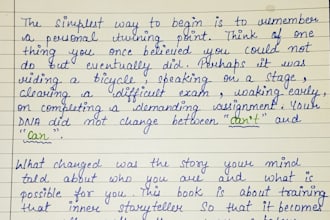 The simplest way to begin is to remember
a personal turning point. Think of one
thing you once believed you could not
do but eventually did. Perhaps it was
riding a bicycle, speaking on a stage,
clearing a difficult exam, waking early,
or completing a demanding assignment. Your
DNA did not change between "can't" and
"can".
What changed was the story your mind
told about who you are and what is
possible for you. This book is about training
that inner storyteller so that it becomes